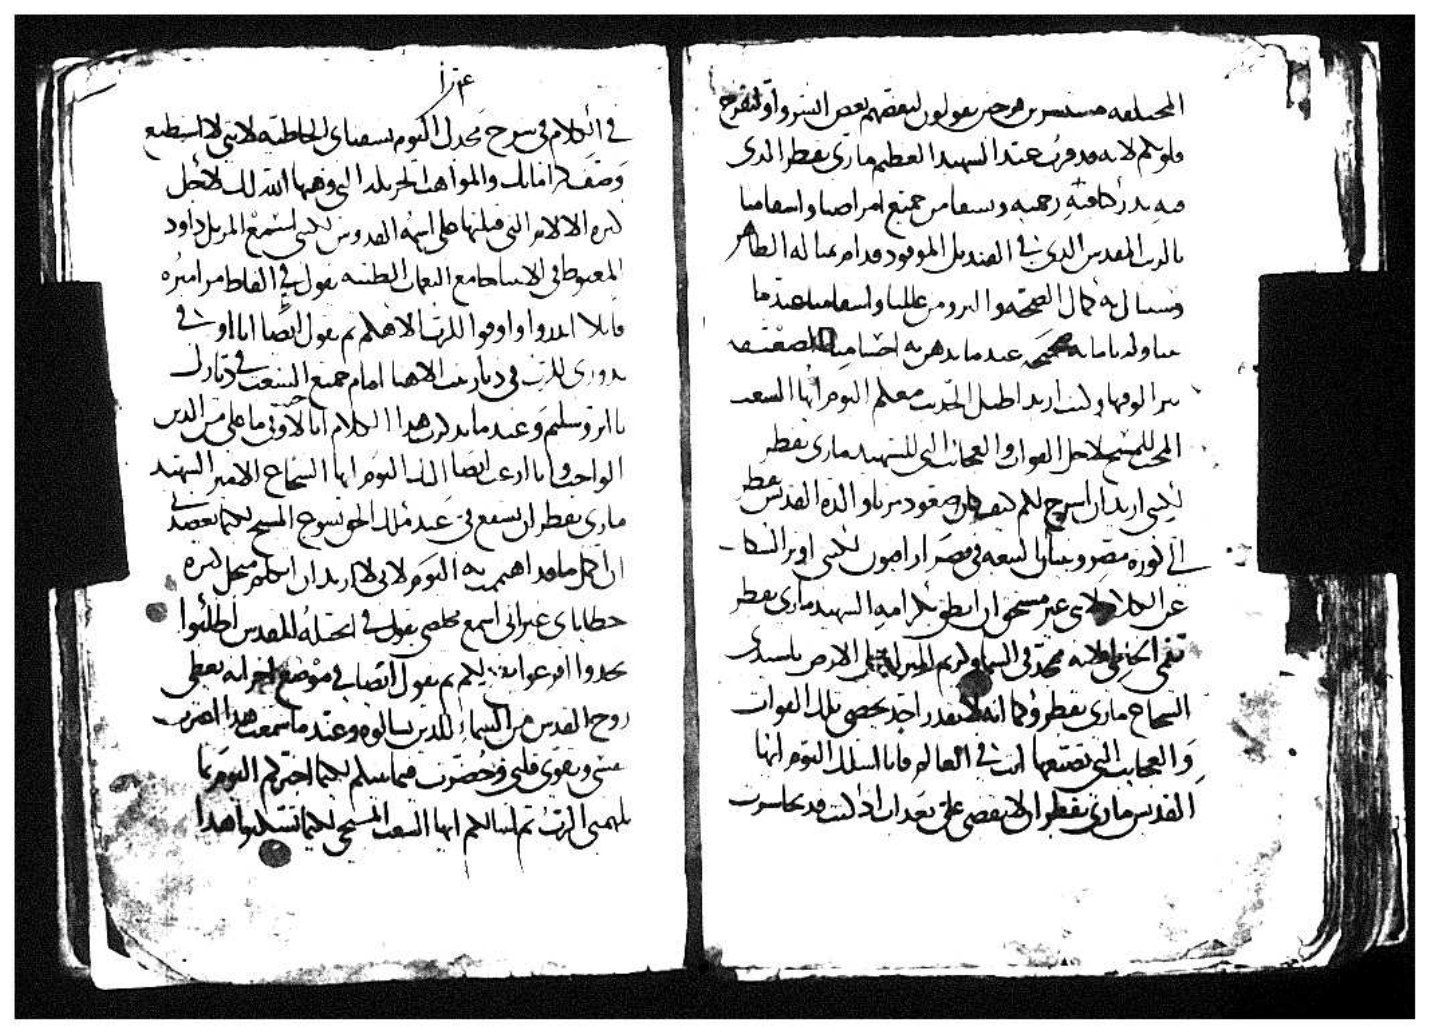 المختلفه مستبشرين فرحين يقولون لبعضهم بعض ابشروا ولتفرح
قلوبكم لانه قد قرب عند الشهيد العظيم ماري بقطر الذي
فيه يدركافته رحمته ويشفا من جميع امراضنا واسقامنا
بالزيت المقدس الذي في القنديل الموقود قدام تمثاله الطاهر
وننال به كمال الصحه والبرو من عللنا واسقامنا عند ما
به صحيحه عند ما يدهن به اجسامنا الضعيفه
اريد اطيل الحديث معكم اليوم ايها الشعب
المحب للمسيح لاجل القوات والعجايب التي للشهيد ماري بقطر
لكني اريد ان اشرح لكم كيف كان صعود مرتا والدة القديس بقطر
الي كورة مصر وبنيان البيعه في مصر لكني اوثر السكات
عن الكلام لاني غير مستحق ان انطق بكرامة الشهيد ماري بقطر
فمي الخاطي لانه ممجد في السما وكريم المنزله علي الارض يا سيدي
الشجاع ماري بقطر وكما انه لا يقدر احد يحصي تلك القوات
والعجايب التي تصنعها انت في العالم فانا اسلك اليوم ايها
القديس ماري بقطر ان لا تغضب علي بعد ان قد تجاسرت
في الكلام في شرح مجدك اليوم بشفتاي الخاطيه لانني لا استطيع
وصف كراماتك والمواهب الجزيله التي وهبها الله لك لاجل
كثرة الالام التي قبلتها علي اسمه القدوس لكني اسمع المرتل داود
المغبوط في الانبيا صاحب النغمات يقول في الفاظ مزاميره
قايلا انذروا واوفوا للرب الاهكم ثم يقول ايضا انا اوفي
نذوري للرب في ديار بيت الاهنا امام جميع الشعب في ديارك
يا اورشليم وعند ما يذكر هذا الكلام انا لاوفي ما علي من الدين
الواجب وانا ارغب ايضا اليك اليوم ايها الشجاع الامير الشهيد
ماري بقطر ان تشفع في عند ملك الحق يسوع المسيح لكيما يعضدني
ان اكمل ما قد اهتممت به اليوم لاني لا اريد ان اتكلم من اجل كثرة
خطاياي غير اني اسمع مخلصي يقول في انجيله المقدس اطلبوا
تجدوا اقرعوا يفتح لكم ثم يقول ايضا في موضع اخر انه يعطي
روح القدس من السماء للذين يسالوه وعند ما سمعت هذا
عني وتقوي قلبي وحضرت فيما بينكم لكيما اخبركم اليوم بما
يلهمني الرب ثم اسالكم ايها الشعب المسيحي لكيما تسكتوا هذا